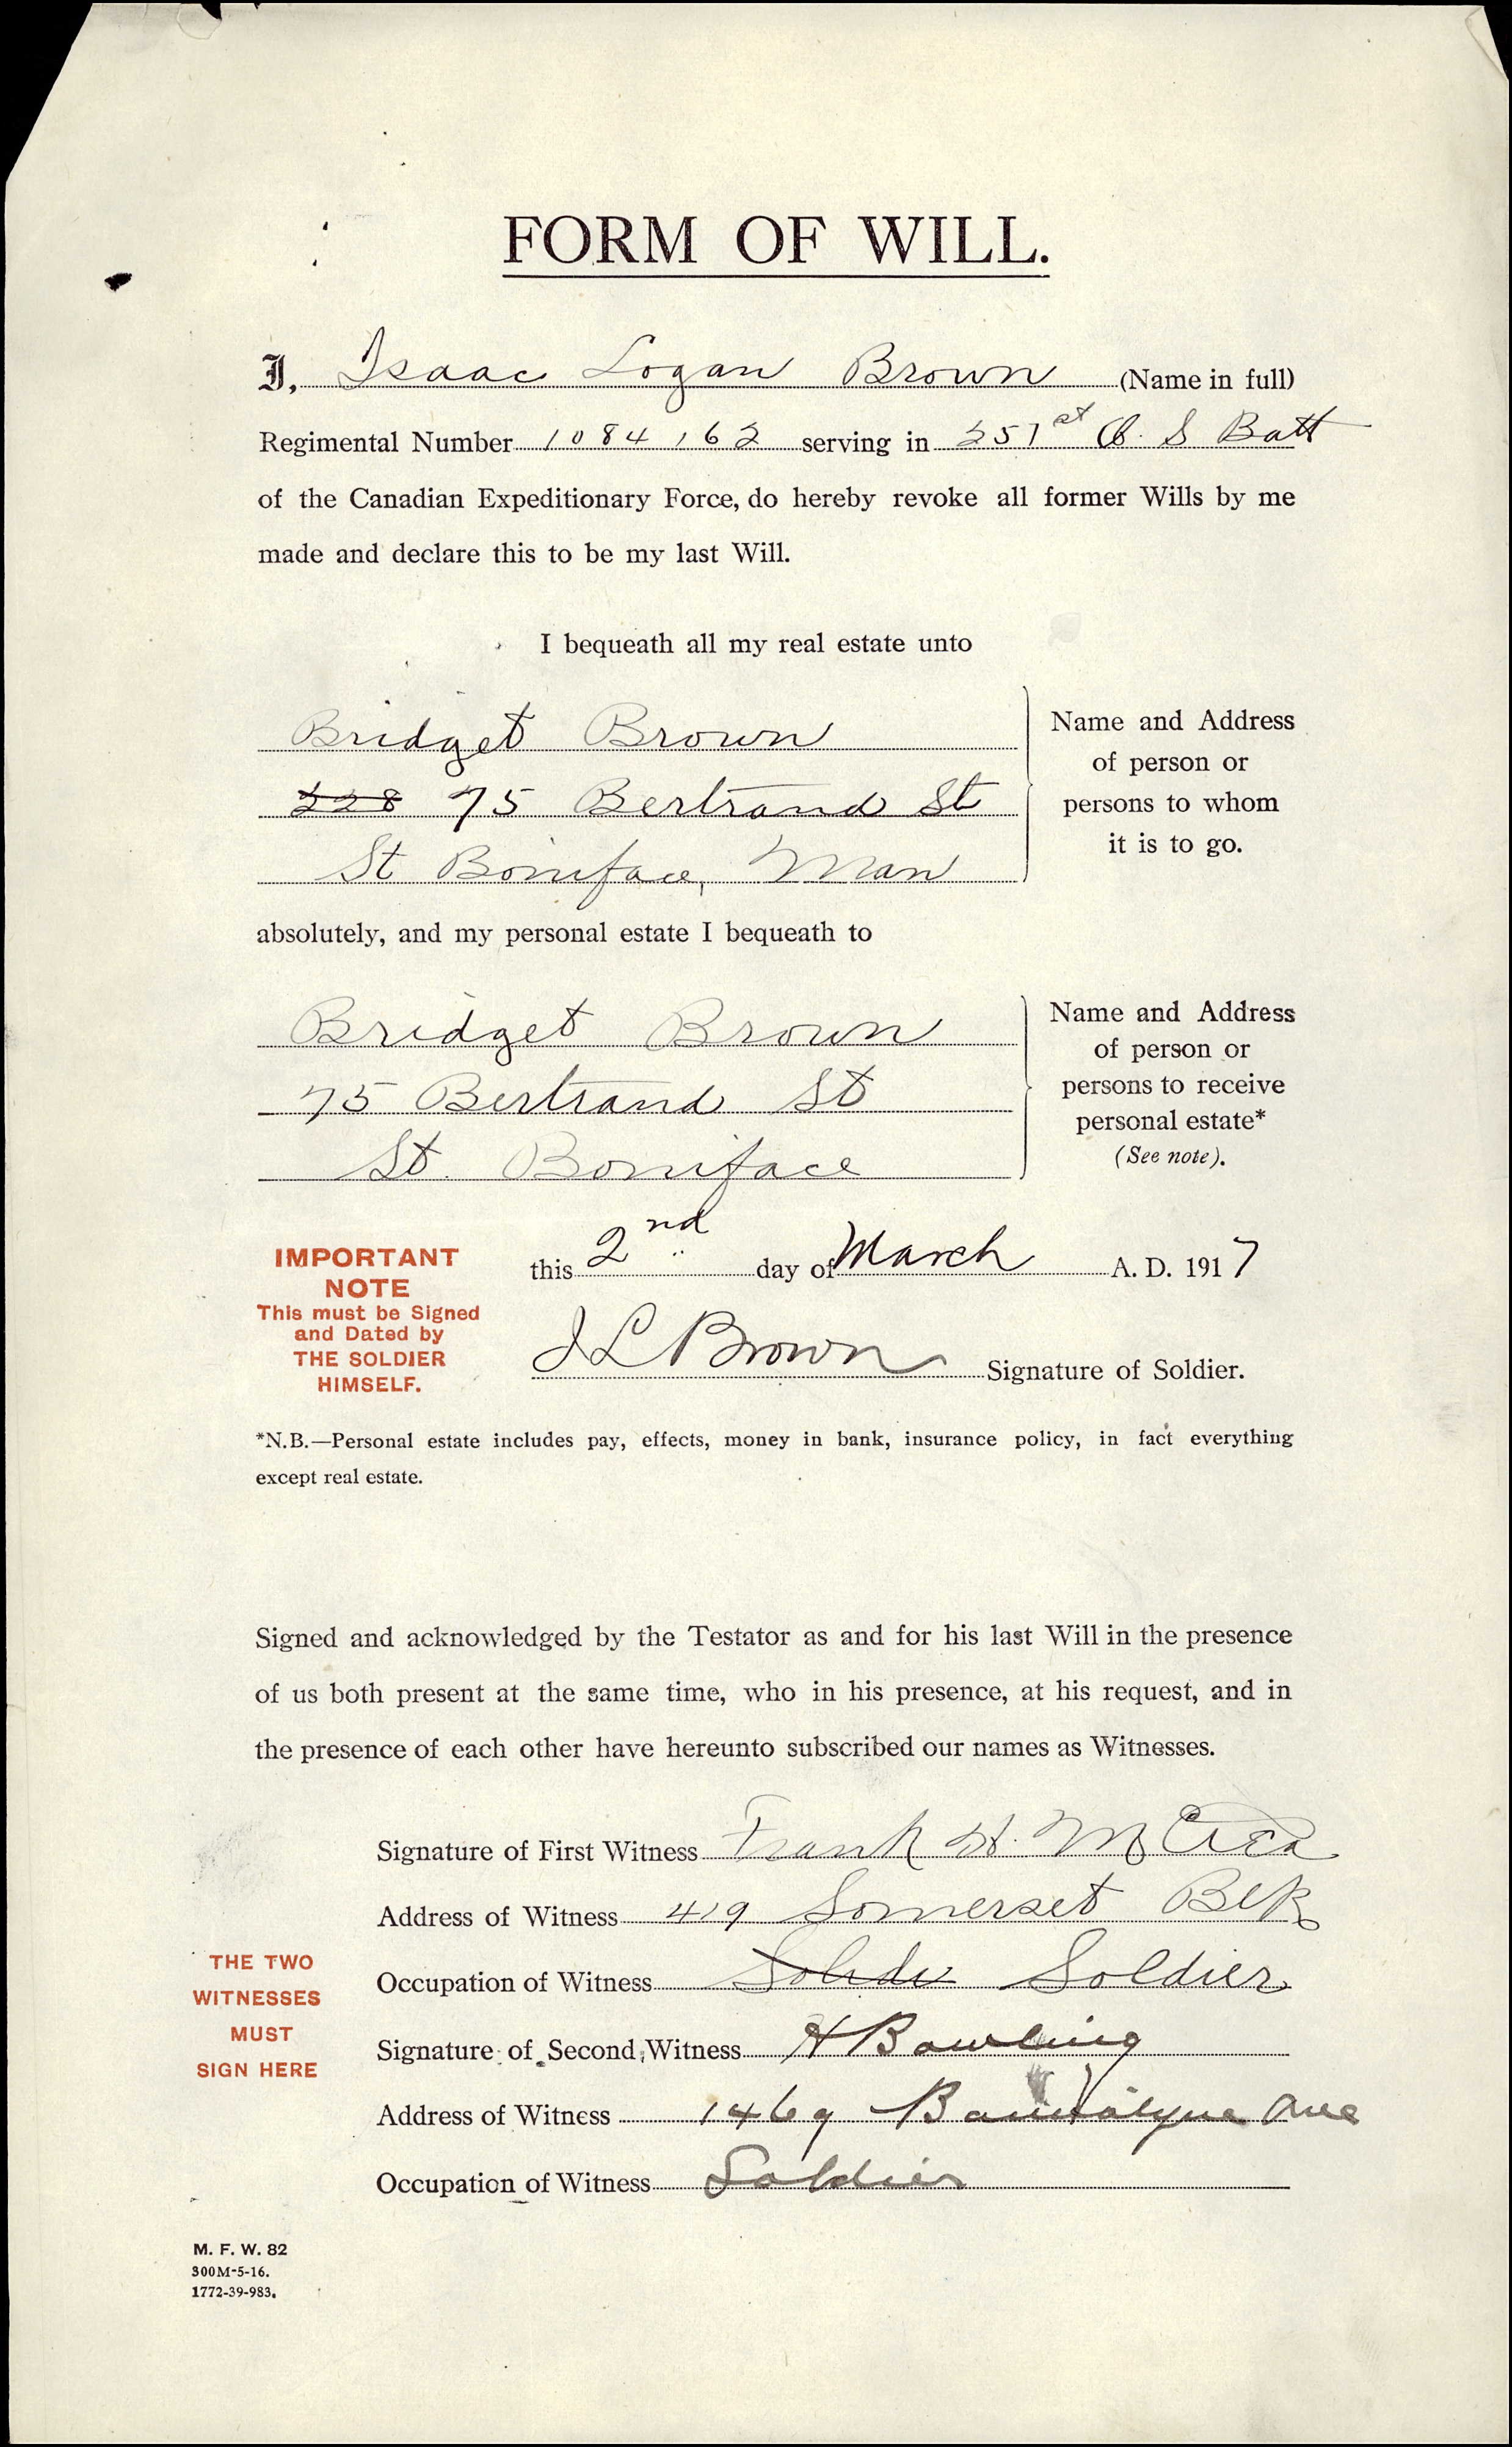 FORM OF WILL.
I, Isaac Logan Brown (Name in full)
Regimental Number 1084162 serving in 251st O. S Batt
of the Canadian Expeditionary Force, do hereby revoke all former Wills by me
made and declare this to be my last Will.
I bequeath all my real estate unto
Bridget Brown
228 75 Bertrand St
St Boniface, Man
Name and Address
of person or
persons to whom
it is to go.
absolutely, and my personal estate I bequeath to
Bridget Brown
75 Bertrand St
St. Boniface
Name and Address
of person or
persons to receive
personal estate*
(See note).
IMPORTANT
NOTE
This must be Signed
and Dated by
THE SOLDIER
HIMSELF.
this 2nd day of March A. D. 1917
I L Brown Signature of Soldier.
*N.B.—Personal estate includes pay, effects, money in bank, insurance policy, in fact everything
except real estate.
Signed and acknowledged by the Testator as and for his last Will in the presence
of us both present at the same time, who in his presence, at his request, and in
the presence of each other have hereunto subscribed our names as Witnesses.
Signature of First Witness Frank H.
Address of Witness 419 Somerset Blk
Occupation of Witness Soldier
THE TWO
WITNESSES
MUST
SIGN HERE
Signature of Second Witness H Bowling
Address of Witness 1469 Bannatyne Ave
Occupation of Witness Soldier
M. F. W. 82
300M-5-16.
1772-39-983.